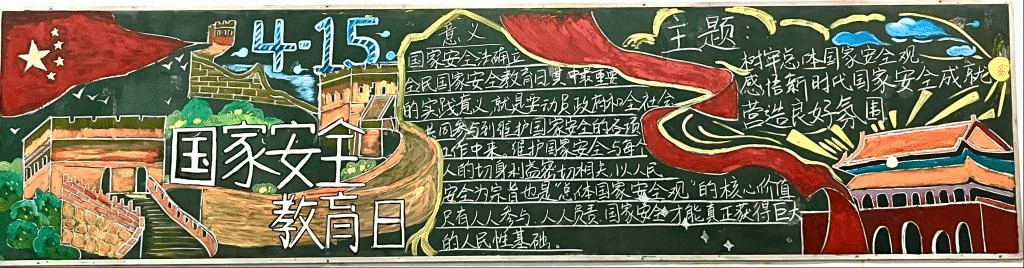 4·15
国家安全
教育日
意义
国家安全法确立
全民国家安全教育日其中最重要
的实践意义就是要动员政府和全社会
共同参与到维护国家安全的各项
工作中来，维护国家安全与每个
人的切身利益密切相关，以人民
安全为宗旨也是“总体国家安全观”的核心价值
只有人人参与，人人负责，国家安全才能真正获得巨大
的人民性基础。
主题：
树牢总体国家安全观，
感悟新时代国家安全成就
营造良好氛围